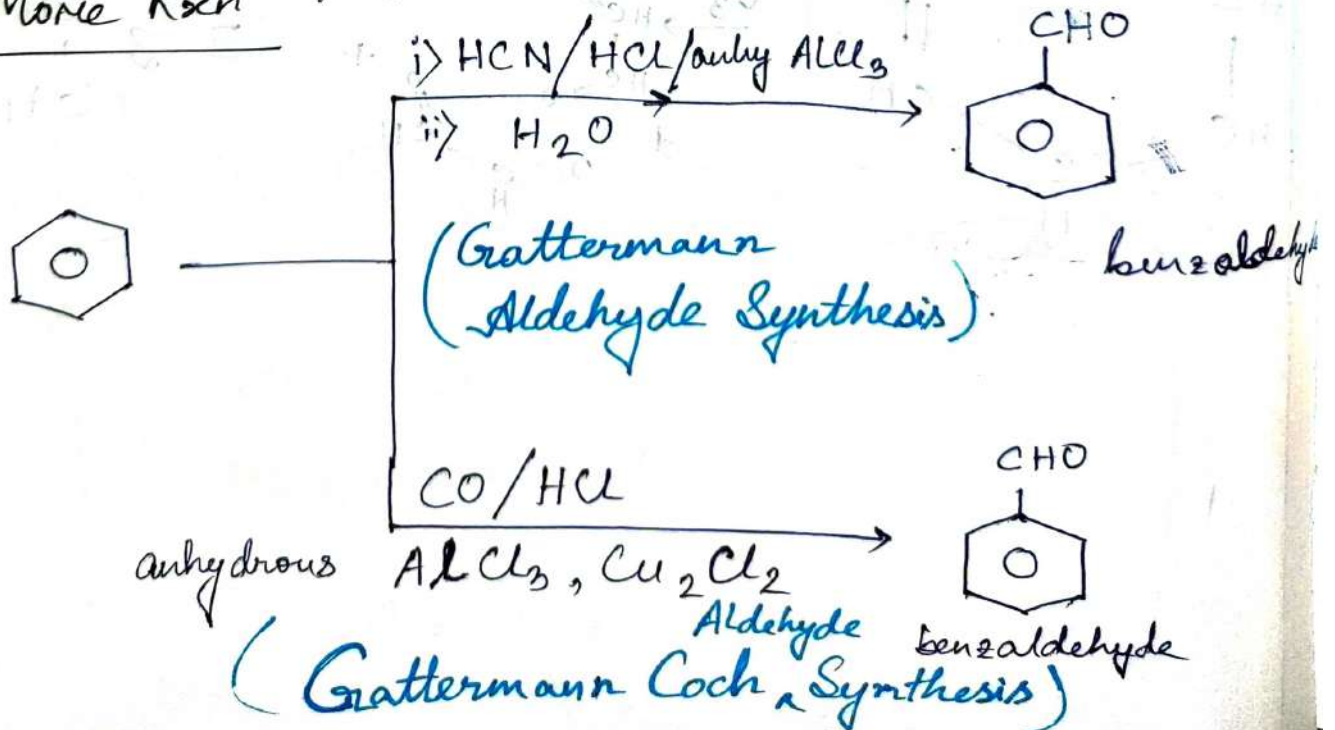 More Rxn
i> HCN/HCl/anhy AlCl₃
ii> H₂O
CHO
(Gattermann
Aldehyde Synthesis).
benzaldehy
CO/HCl
anhydrous AlCl₃, Cu₂Cl₂
CHO
benzaldehyde
(Gattermann Coch ‸Aldehyde Synthesis)